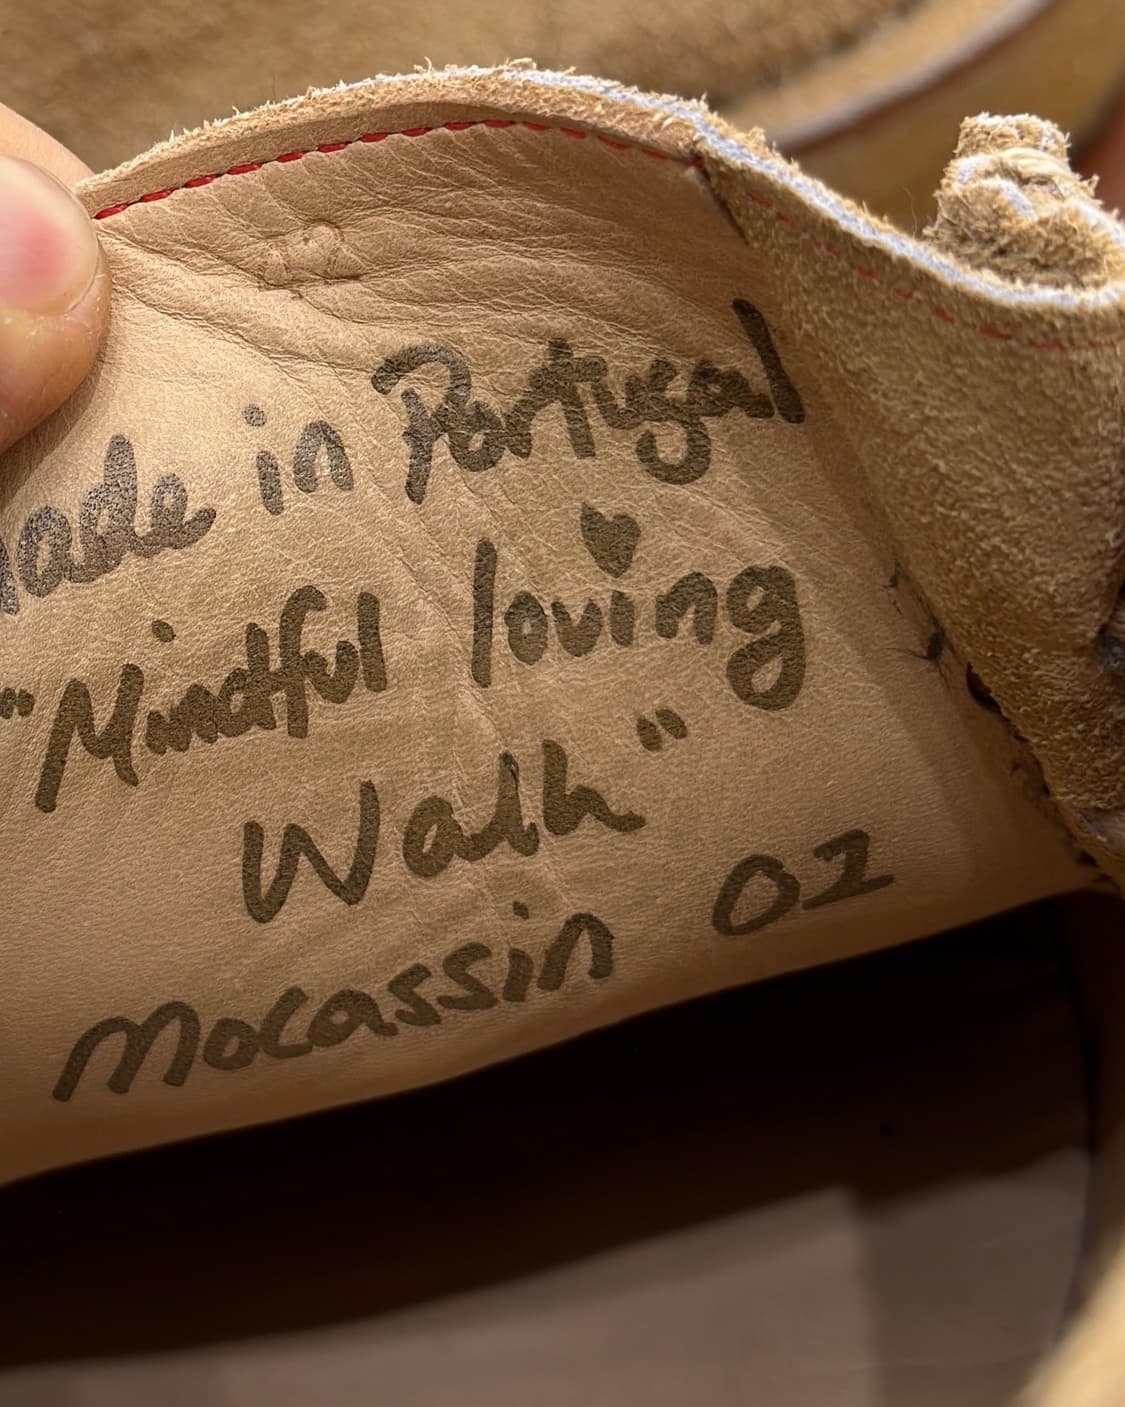 made in Portugal
"Mindful loving
Walk"
Mocassin 02